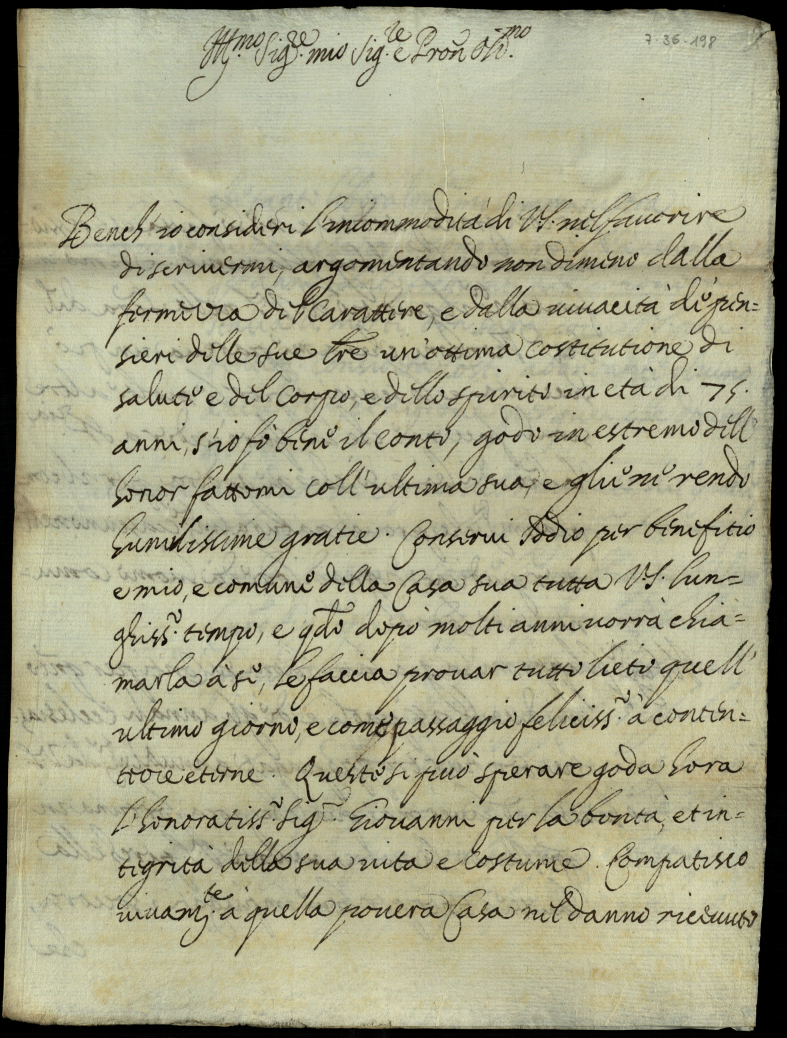 Ill.mo Sig.re mio Sig.re e Pron Oss.mo
7-36-198
Bench'io consideri l'incommodità di VS. nel favorire
di scrivermi, argomentando nondimeno dalla
fermezza del Carattere, e dalla vivacità de' pen=
sieri delle sue lre un'ottima costitutione di
salute e del Corpo, e dello spirito in età di 75.
anni, s'io fò bene il conto, godo in estremo dell'
honor fattomi coll'ultima sua, e gliene rendo
humilissime gratie. Conservi Iddio per benefitio
e mio, e comune della Casa sua tutta VS. lun=
ghiss.o tempo, e qdo dopò molti anni vorrà chia=
marla à sè, le faccia provar tutto lieto quell'
ultimo giorno, e come passaggio feliciss.o à conten=
tezze eterne. Questo si può sperare goda hora
l'honoratiss.o Sig.r Giovanni per la bontà, et in=
tegrità della sua vita e costume. Compatisco
vivam.te à quella povera Casa nel danno ricevuto